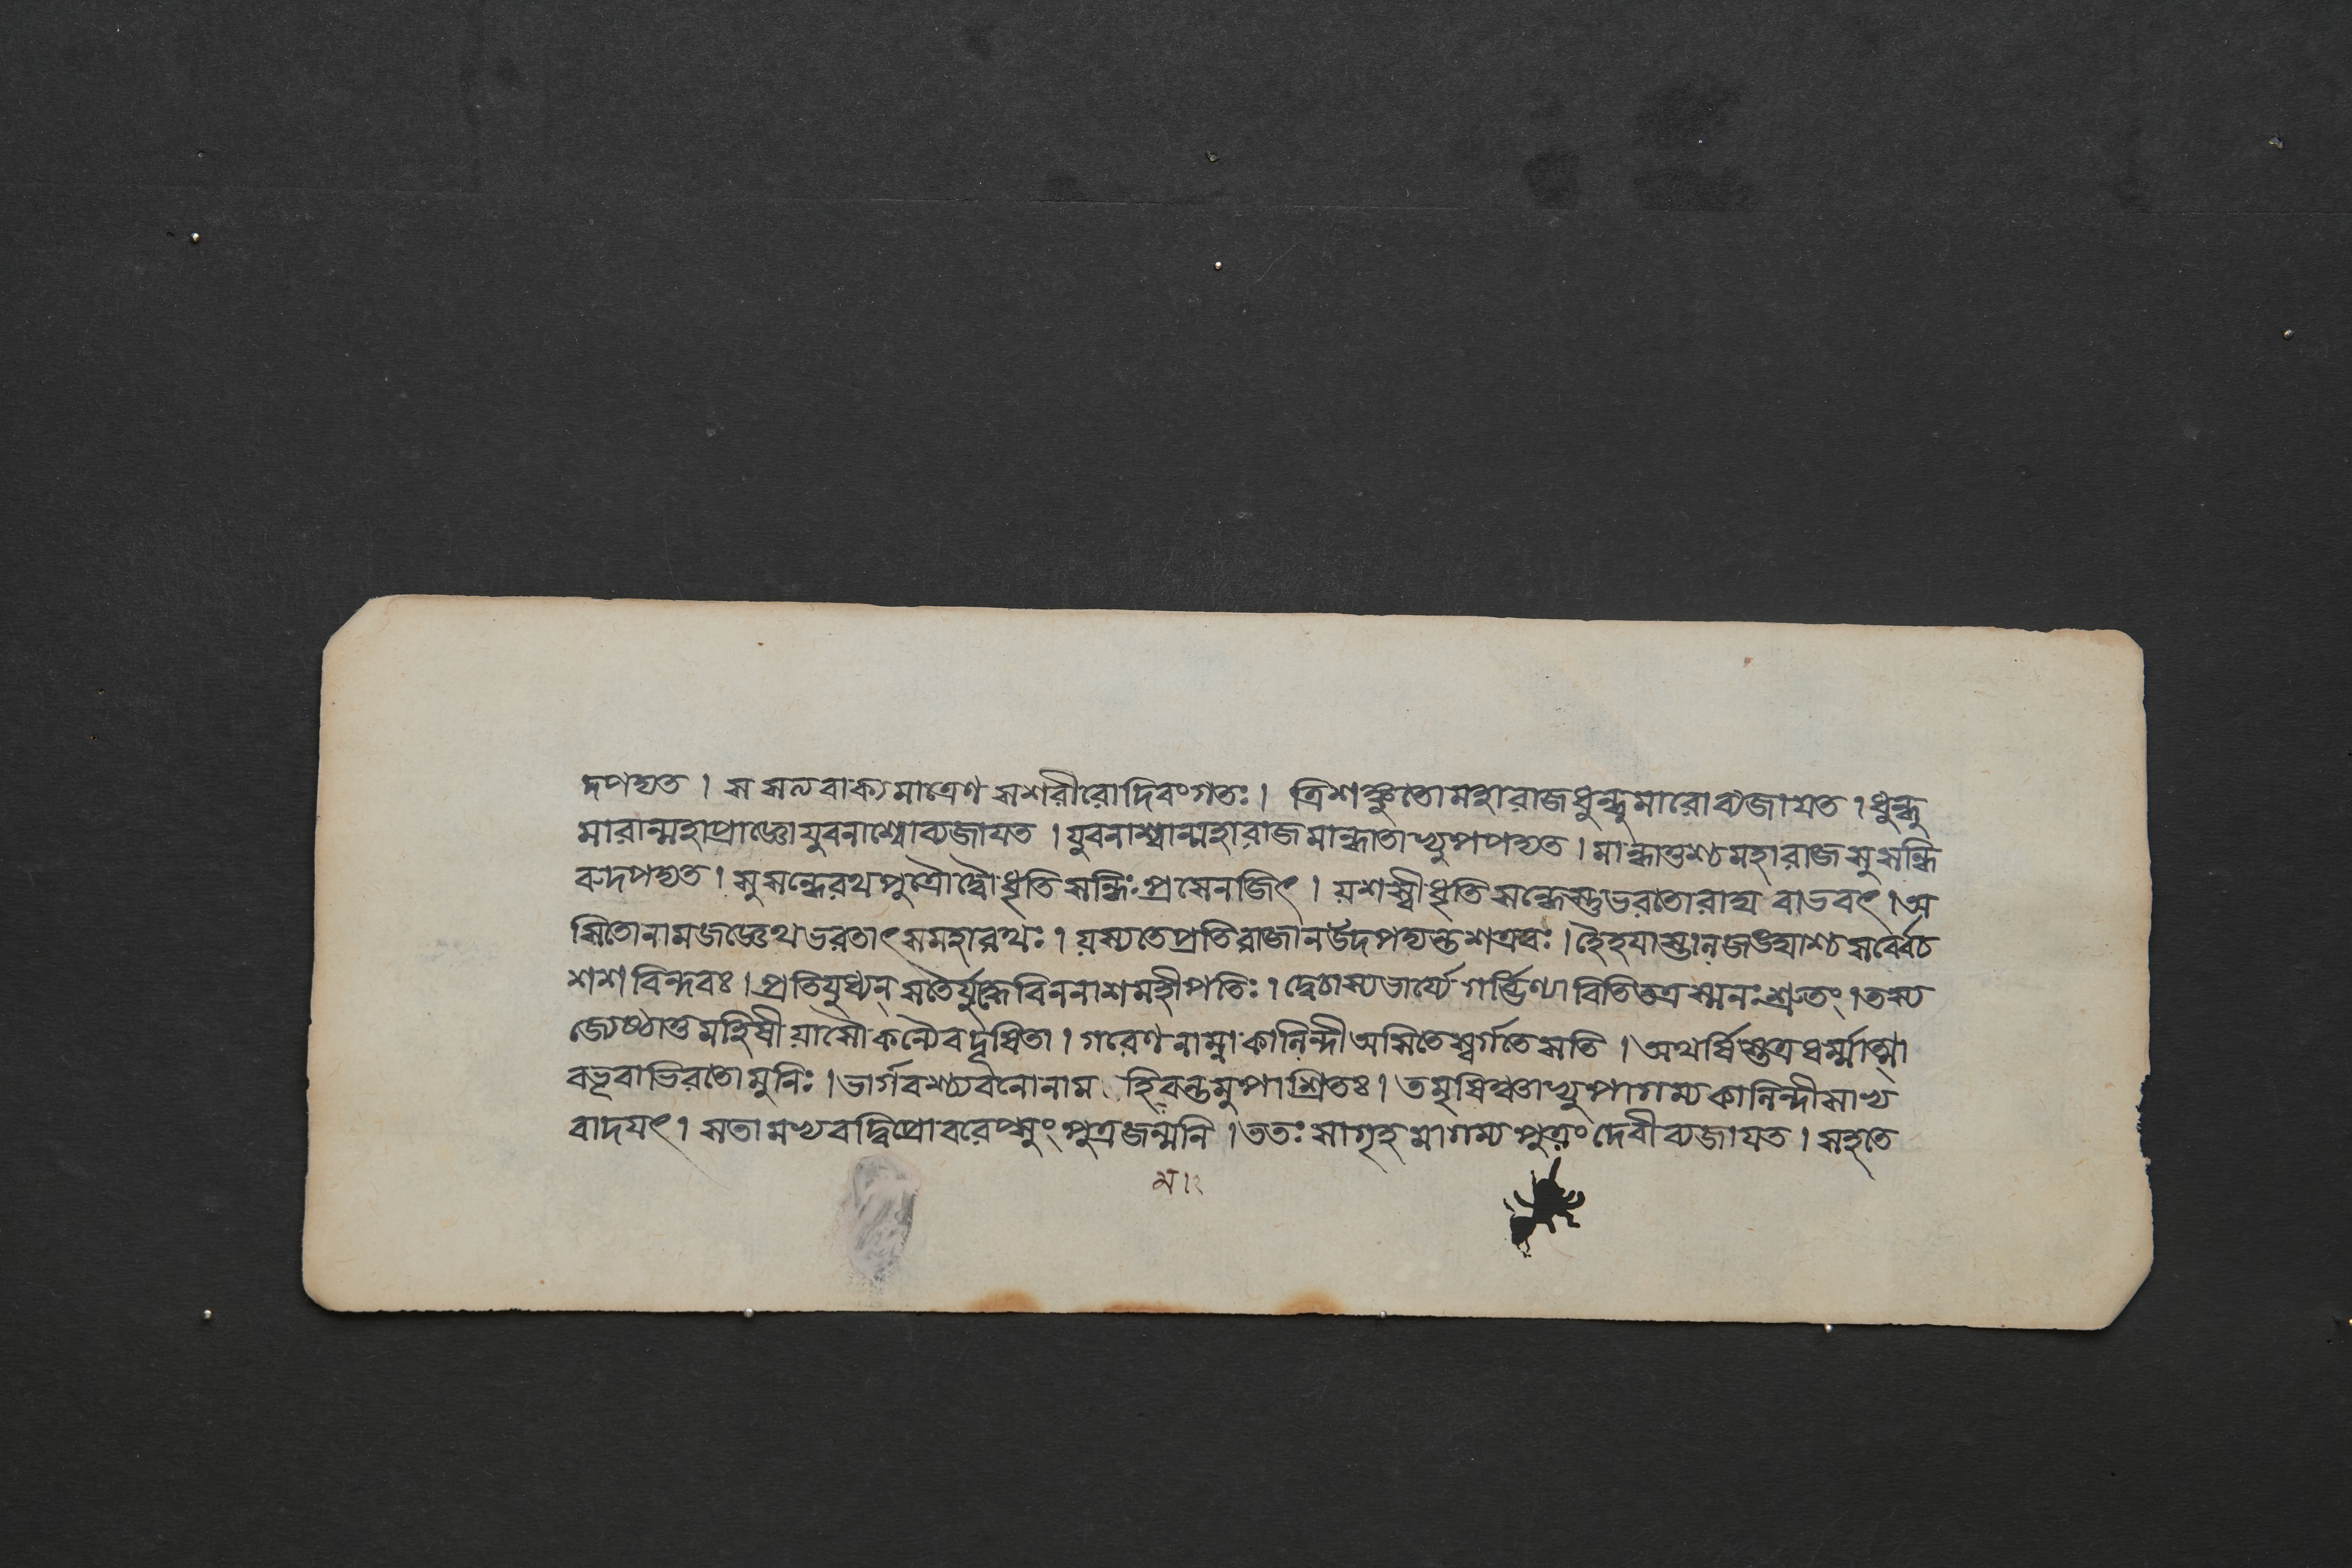 দপদ্যত । স সত্যবাক্যমাত্রেণ সশরীরোদিবংগতঃ । ত্রিশঙ্কুতোমহারাজধুন্ধুমারোব্যজাযত । ধুন্ধু
মারান্মহাপ্রাজ্ঞোযুবনাশ্বোব্যজাযত । যুবনাশ্বান্মহারাজমান্ধাতাপ্যুপপদ্যত । মান্ধাতুশ্চমহারাজসুসন্ধি
রুদপদ্যত । সুসন্ধেরথপুত্রৌদ্বৌধৃতিসন্ধিঃপ্রসেনজিৎ । যশস্বীধৃতিসন্ধেস্তুভরতোরাজা বাভবৎ । অ
সিতোনামজজ্ঞেথভরতাৎসমহারথঃ । যস্যতেপ্রতিরাজানউদপদ্যন্তশত্রবঃ । হৈহযাস্তানজঙ্ঘাশ্চসর্ব্বেচ
শশবিন্দবঃ । প্রতিযুধ্যন্সতৈর্যুদ্ধেবিননাশমহীপতিঃ । দ্বেচাস্যভার্য্যেগর্ব্ভিণ্যাবিতিতত্রস্মনঃশ্রুতং । তস্য
জ্যেষ্ঠাতুমহিষীযাসৌকন্যৈবদূষিতা । গরেণনাম্নাকালিন্দীঅসিতেস্বর্গতেসতি । অথর্ষিস্তত্রধর্ম্মাত্মা
বভূবাভিরতোমুনিঃ । ভার্গবশ্চ্যবনোনাম হিবন্তমুপাশ্রিতঃ । তমৃষিঞ্চাপ্যুপাগম্যকালিন্দীসাপ্য
বাদযৎ । সতামপ্যবদদ্বিপ্রোবরেপ্সুং পুত্রজন্মনি । ততঃ সাগৃহমাগম্যপুত্রং দেবীব্যজাযত । সহতে
ম ।২